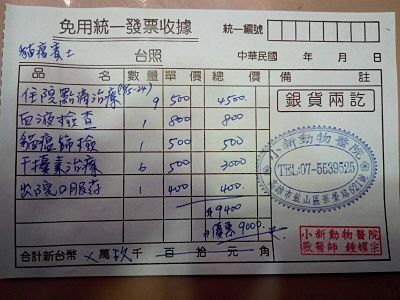 免用統一發票收據
統一編號
貓瘟賓士 台照 中華民國 年 月 日
品名 數量 單價 總價 備註
住院點滴治療(15-24) 9 500 4500
血液檢查 1 800 800
貓瘟篩檢 1 500 500
干擾素治療 6 500 3000
出院口服藥 1 400 400
$9400
優惠9000
合計新台幣 ×萬玖千百拾元角
銀貨兩訖
小新動物醫院
TEL:07-5539525
小新動物醫院
獸醫師 鍾耀宗